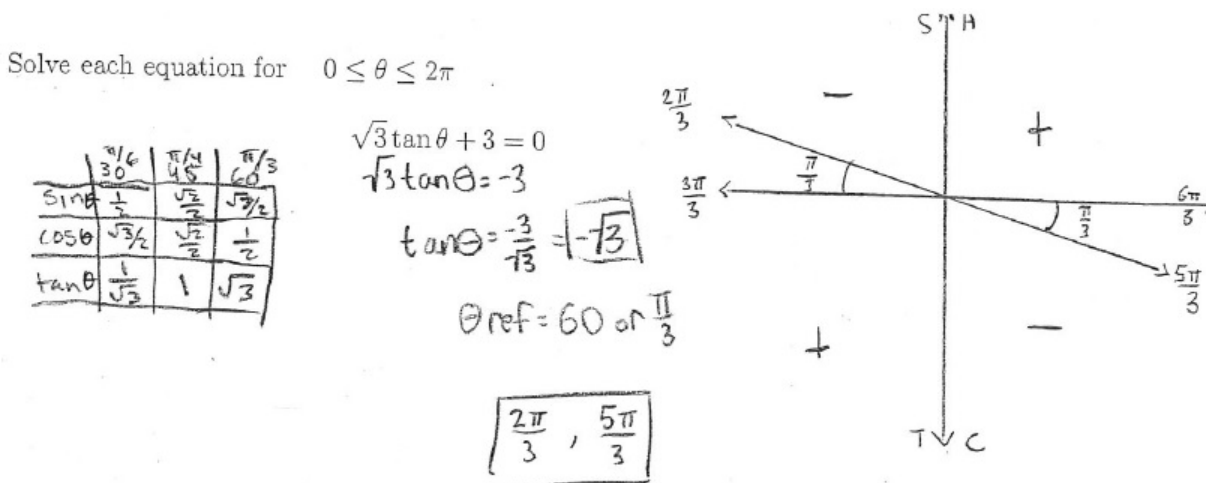 Solve each equation for 0 ≤ θ ≤ 2π
√3 tan θ + 3 = 0
π/6 π/4 π/3
30 45 60
sinθ 1/2 √2/2 √3/2
cosθ √3/2 √2/2 1/2
tanθ 1/√3 1 √3
√3 tanθ = -3
tanθ = -3/√3 = -√3
θ ref = 60 or π/3
2π/3 , 5π/3
S A
- +
2π/3
π/3
3π/3 6π/3
π/3
5π/3
+ -
T C